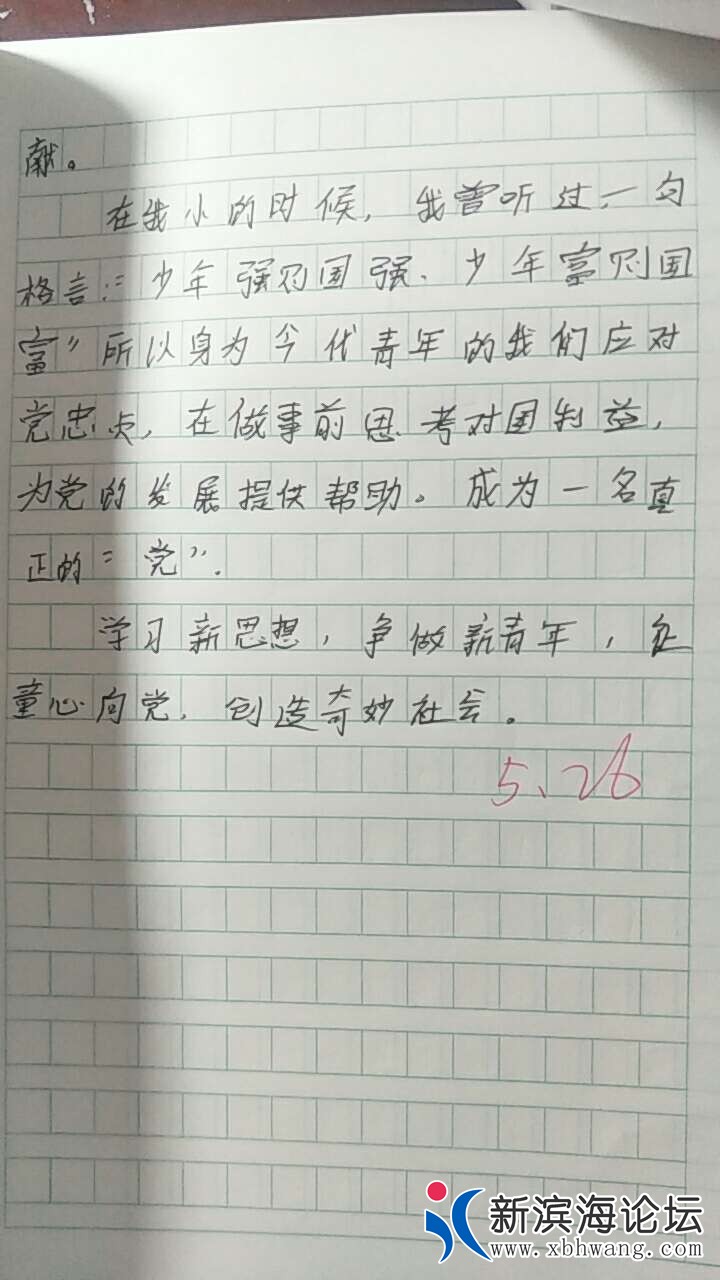 献。
在我小的时候，我曾听过一句
格言："少年强则国强、少年富则国
富"所以身为今代青年的我们应对
党忠贞，在做事前思考对国利益，
为党的发展提供帮助。成为一名真
正的"党".
学习新思想，争做新青年，让
童心向党，创造奇妙社会。
5、26
新滨海论坛
www.xbhwang.com